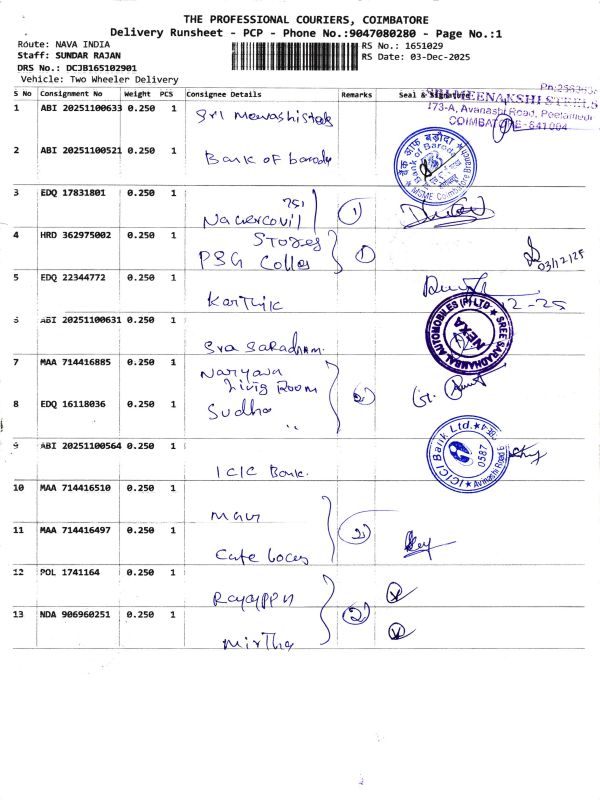 THE PROFESSIONAL COURIERS, COIMBATORE
Delivery Runsheet - PCP - Phone No.:9047080280 - Page No.:1
Route: NAVA INDIA
RS No.: 1651029
Staff: SUNDAR RAJAN
RS Date: 03-Dec-2025
DRS No.: DCJB165102901
Vehicle: Two Wheeler Delivery
S No Consignment No Weight PCS Consignee Details Remarks Seal & Signature
SRI MEENAKSHI STEELS
173-A, Avanashi Road, Peelamedu
COIMBATORE-641004
1 ABI 20251100633 0.250 1
Sri
2 ABI 20251100521 0.250 1
Bank of baroda
बैंक ऑफ़ बड़ौदा
Bank of Baroda
MSME Coimbatore Branch
3 EDQ 17831801 0.250 1
751
Nagercovil
1
4 HRD 362975002 0.250 1
Stores
PSG
1
03/12/25
5 EDQ 22344772 0.250 1
Karthik
2-25
6 ABI 20251100631 0.250 1
Sra Saradham
SREE SARADHAMBAL AUTOMOBILES (P) LTD
NEXA
7 MAA 714416885 0.250 1
Naryana
Living Room
2
8 EDQ 16118036 0.250 1
Sudha
9 ABI 20251100564 0.250 1
ICIC Bank.
ICICI Bank Ltd.
0587
Avinashi Road
10 MAA 714416510 0.250 1
11 MAA 714416497 0.250 1
2
Cafe
12 POL 1741164 0.250 1
Rayappn
13 NDA 906960251 0.250 1
2
Mirtha